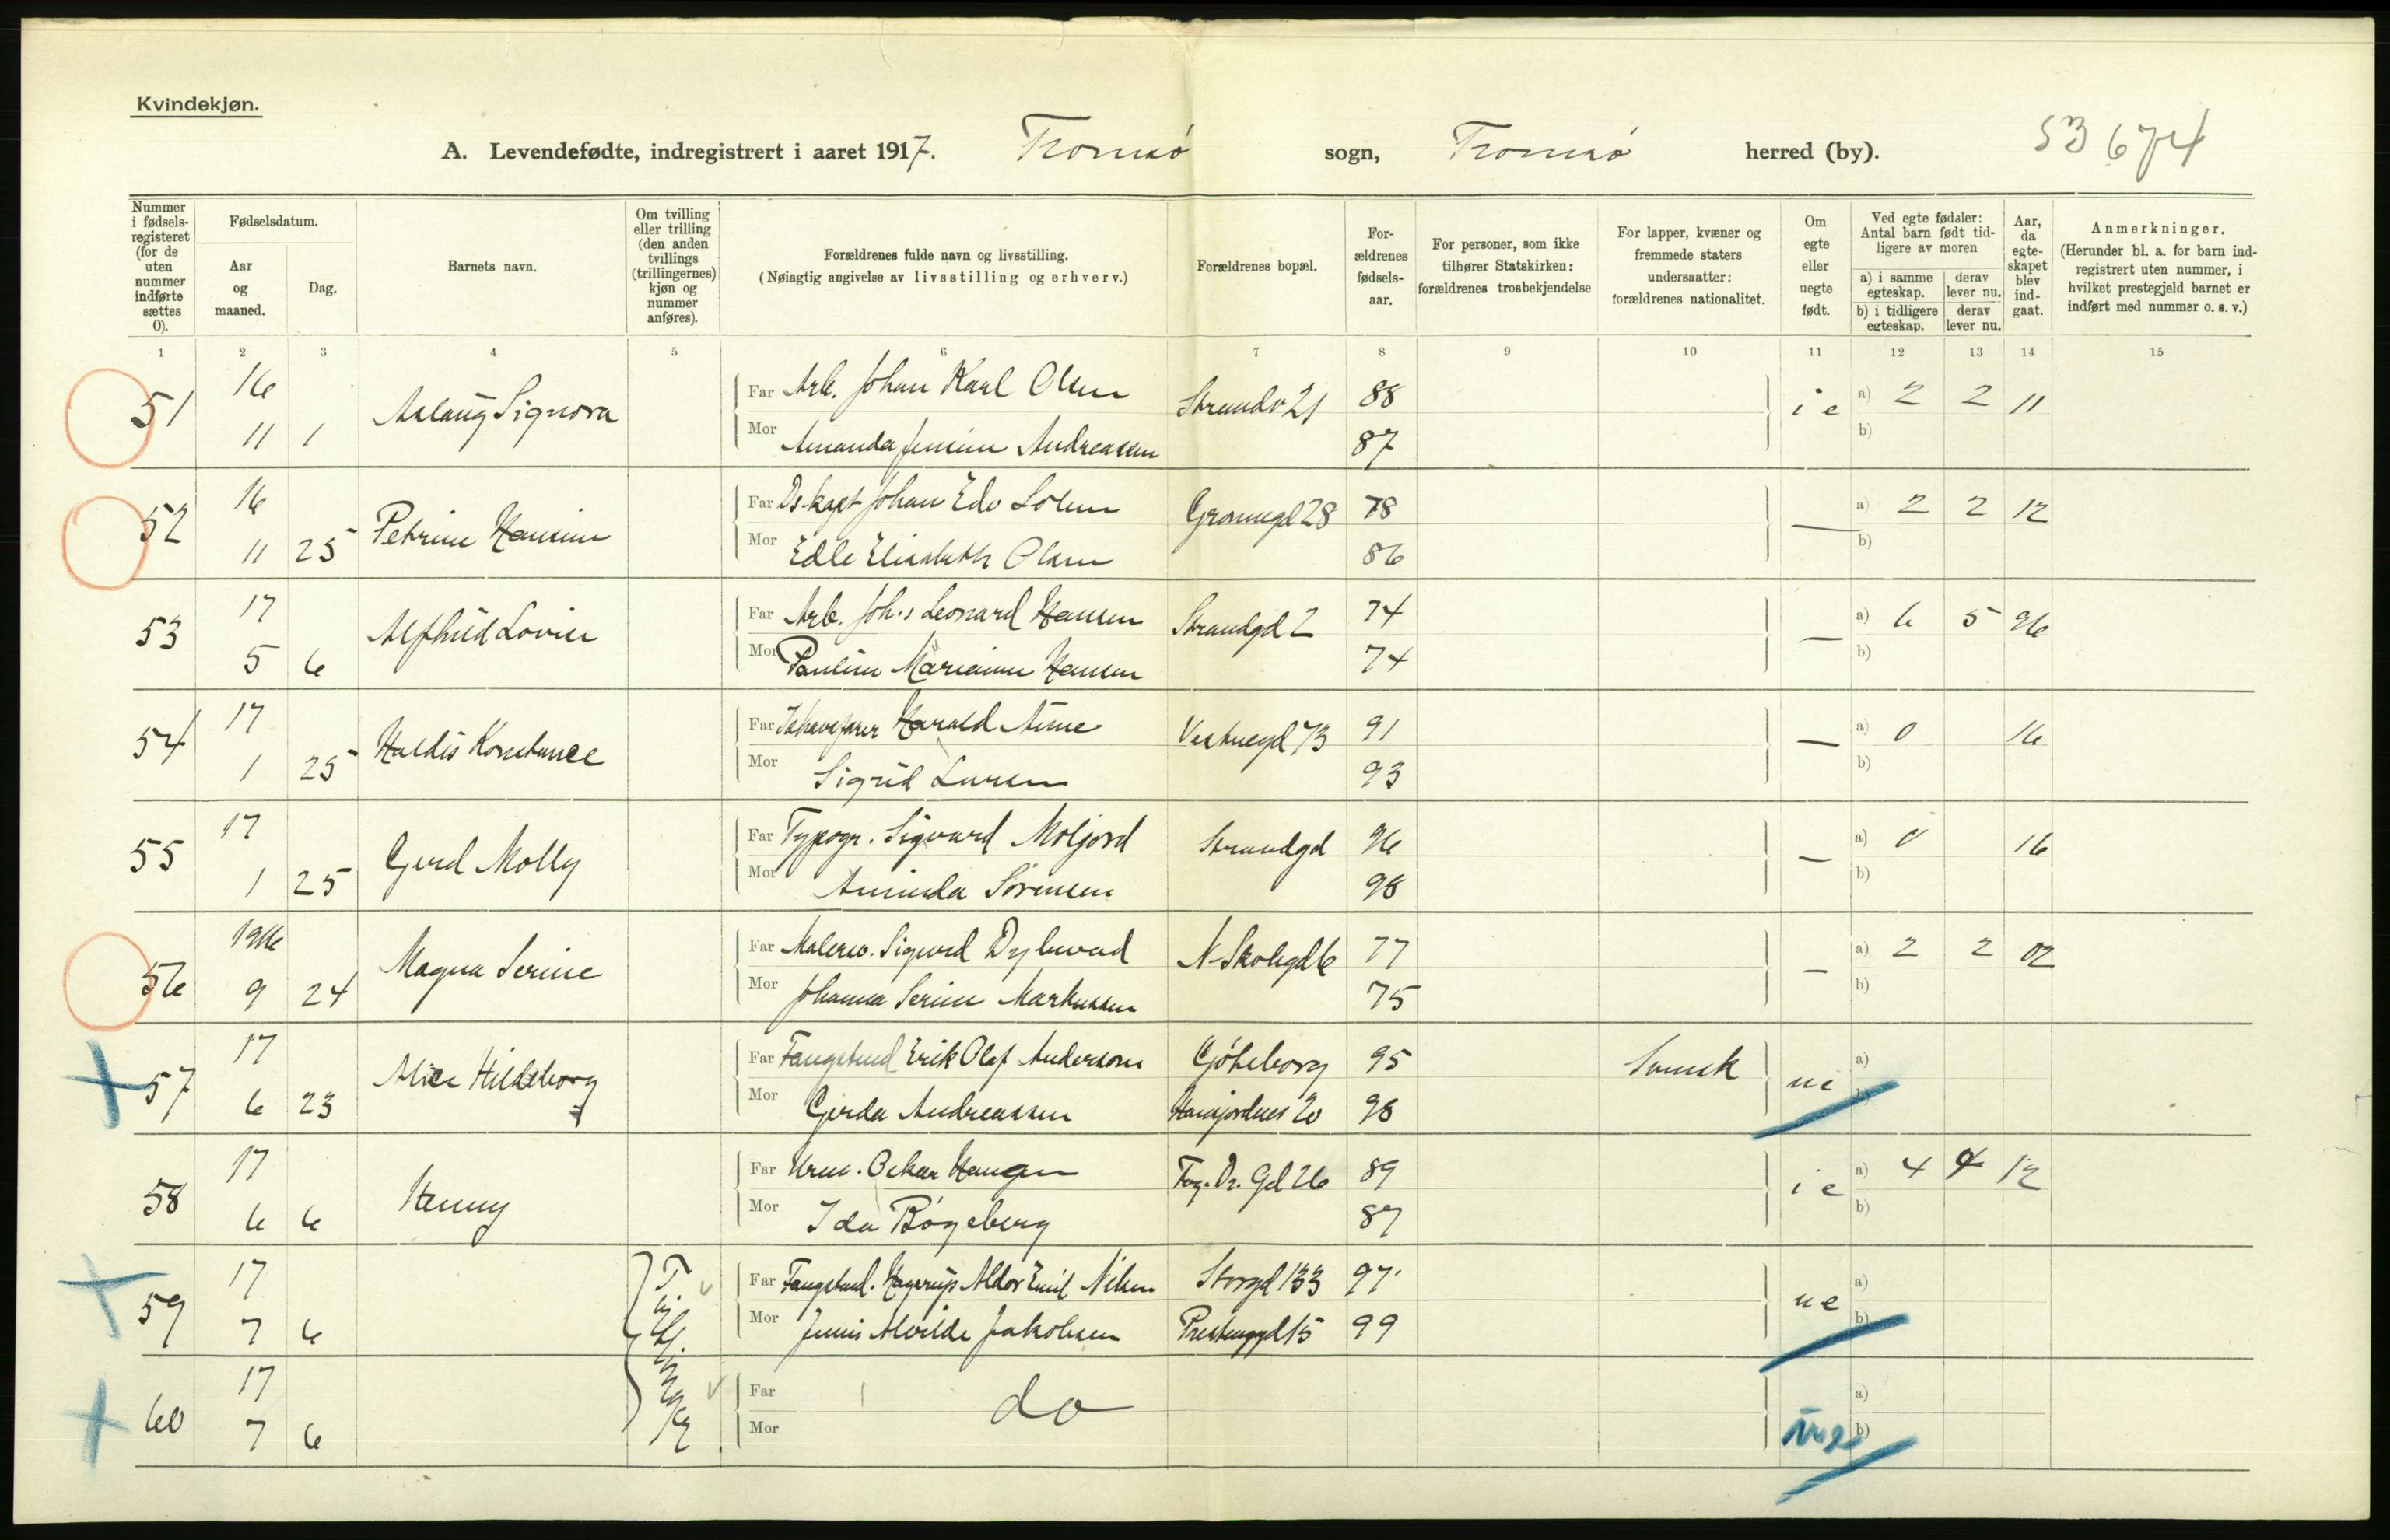 Kvindekjøn.
A. Levendefødte, indregistrert i aaret 1917. Tromsø sogn, Tromsø herred (by). 53 674
Nummer i fødselsregisteret (for de uten nummer indførte sættes 0).
Fødselsdatum.
Aar og maaned.
Dag.
Barnets navn.
Om tvilling eller trilling (den anden tvillings (trillingernes) kjøn og nummer anføres).
Forældrenes fulde navn og livsstilling.
(Nøiagtig angivelse av livsstilling og erhverv.)
Forældrenes bopæl.
Forældrenes fødselsaar.
For personer, som ikke tilhører Statskirken: forældrenes trosbekjendelse
For lapper, kvæner og fremmede staters undersaatter: forældrenes nationalitet.
Om egte eller uegte født.
Ved egte fødsler: Antal barn født tidligere av moren
a) i samme egteskap. derav lever nu.
b) i tidligere egteskap. derav lever nu.
Aar, da egteskapet blev indgaat.
Anmerkninger.
(Herunder bl. a. for barn indregistrert uten nummer, i hvilket prestegjeld barnet er indført med nummer o. s. v.)
1 2 3 4 5 6 7 8 9 10 11 12 13 14 15
51 16 Aslaug Signora Far Arb. Johan Karl Olsen Strandv 21 88 i e a) 2 2 11
11 1 Mor Amanda Jensine Andreassen 87 b)
52 16 Petrine Hansine Far Ds.kapt Johan Edv Solem Grønnegd 28 78 — a) 2 2 12
11 25 Mor Edle Elisabeth Olsen 86 b)
53 17 Alfhild Lovise Far Arb. Joh.s Leonard Hansen Strandgd 2 74 — a) 6 5 96
5 6 Mor Pauline Marianne Hansen 74 b)
54 17 Haldis Konstance Far Ishavsfarer Harald Vestregd 73 91 — a) 0 16
1 25 Mor Sigrid Larsen 93 b)
55 17 Gerd Molly Far Typogr. Sigvard Moljord Strandgd 96 — a) 0 16
1 25 Mor Sørensen 98 b)
56 1916 Magna Serine Far Malersv. Sigurd N-Skolegd 6 77 — a) 2 2 02
9 24 Mor Johanna Serine Markussen 75 b)
57 17 Alice Hildeborg Far Fangstmd Erik Olaf Anderson Gøteborg 95 Svensk ue a)
6 23 Mor Gerda Andreassen Hansjordnes 20 98 b)
58 17 Henny Far Urm. Oskar Haugen Fog. Dr. Gd 26 89 i e a) 4 4 12
6 6 Mor Ida Bøgeberg 87 b)
59 17 Far Fangstmd. Hagerup Aldor Emil Nilsen Storgd 133 97 ue a)
7 6 Mor Jenis Alvilde Jakobsen Prestenggd 15 99 b)
60 17 Far do a)
7 6 Mor b)